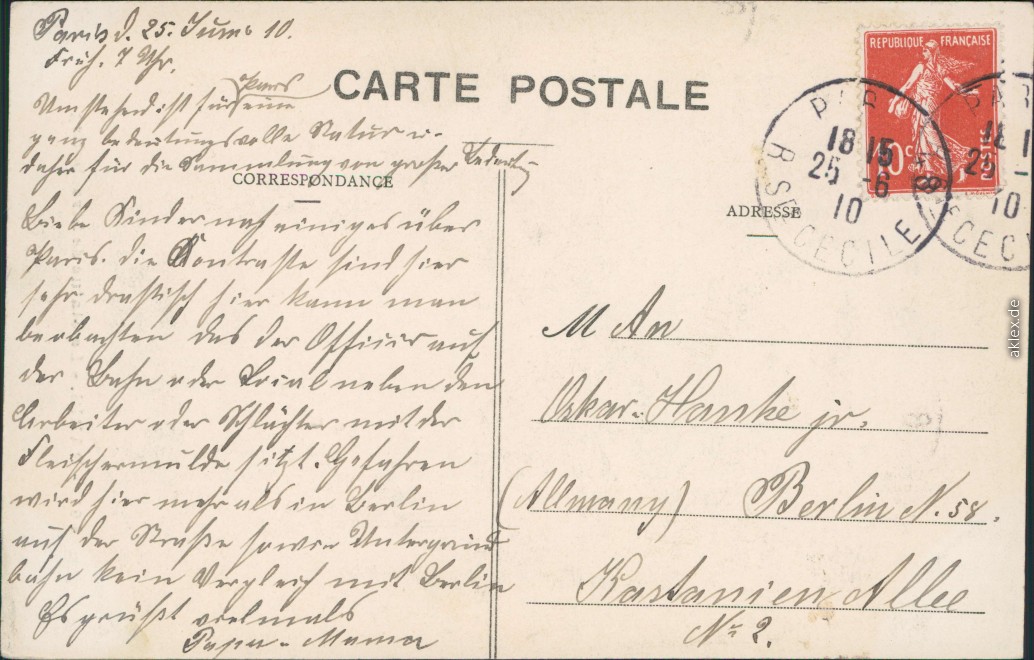 Paris d. 25. Juni 10.
Früh. 7 Uhr.
CARTE POSTALE
Umstehend ist für Paris eine
ganz bedeutungsvolle Natur u.
daher für die Sammlung von großer Bedeut-
CORRESPONDANCE
Liebe Kinder noch einiges über
Paris. die Kontraste sind hier
sehr drastisch hier kann man
beobachten das der Officier auf
der Bahn oder Lokal neben den
Arbeiter oder Schlächter mit der
Fleischermulde sitzt. Gefahren
wird hier mehr als in Berlin
auf der Straße sowie Untergrund
bahn kein Vergleich mit Berlin
Es grüßt vielmals
Papa - Mama
REPUBLIQUE FRANÇAISE
10c POSTES
18 15
25 -6
10
R STE CECILE
ADRESSE
An
Oskar Hanke jr.
(Allmany) Berlin N. 58.
Kastanien Allee
No 2.
aklex.de